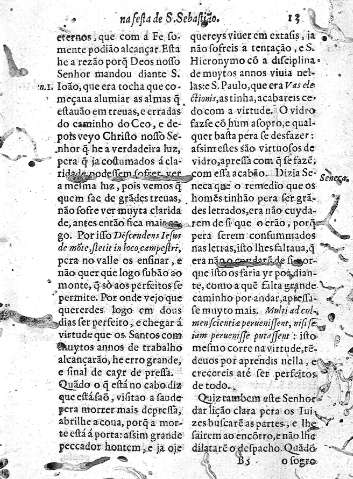 na festa de S. Sebastião. 13
eternos, que com a Fe somente
podião alcançar. Esta
he a rezão porq̃ Deos nosso
Senhor mandou diante S.
Ioão, que era tocha que começaua
alumiar as almas q̃
estauão em treuas, e erradas
do caminho do Ceo, e depois
veyo Christo nosso Senhor
q̃ he a verdadeira luz,
pera q̃ ja costumados á claridade
podessem sofrer ver
a mesma luz, pois vemos q̃
quem sae de grãdes treuas,
não sofre ver muyta claridade,
antes então fica mais
go. Por isso Descendens Iesus
de mõte, stetit in loco campestri,
pera no valle os ensinar, e
não quer que logo subão ao
monte, q̃ só aos perfeitos se
permite. Por onde vejo que
quererdes logo em dous
dias ser perfeito, e chegar á
virtude que os Santos com
muytos annos de trabalho
alcançarão, he erro grande,
e sinal de cayr de pressa.
Quãdo o q̃ está no cabo diz
que está são, visitao a saude
pera morrer mais depressa,
abrilhe a coua, porq̃ a morte
está á porta: assim grande
peccador hontem, e ja oje
quereys viuer em extasis, ja
não sofreis a tentação, e S.
Hieronymo cõ a disciplina
de muytos annos viuia nelles:
S. Paulo, que era Vas electionis,
as tinha, acabareis cedo
com a virtude. O vidro
fazse cõ hum assopro, e qualquer
basta pera se desfazer:
assim estes são virtuosos de
vidro, apressa com q̃ se fazẽ,
com essa acabão. Dizia Seneca
que o remedio que os
homẽs tinhão pera ser grandes
letrados, era não cuydarem
de si que o erão, porq̃
pera serem consummados
nas letras, isto lhes faltaua, q̃
era não o cuydarẽ de si, porque
isto os faria yr por diante,
como a quẽ falta grande
caminho por andar, apressase
muyto mais. Multi ad culmen
scientiæ peruenissent, nisi se
iam peruenisse putassent: isto
mesmo corre na virtude, tẽdeuos
por aprendis nella, e
crecereis até ser perfeitos
de todo.
Quiz tambem este Senhor
dar lição clara pera os Iuizes
buscarẽ as partes, e lhe
sairem ao encõtro, e não lhe
dilatarẽ o despacho. Quãdo
B5 o sogro
Seneca,